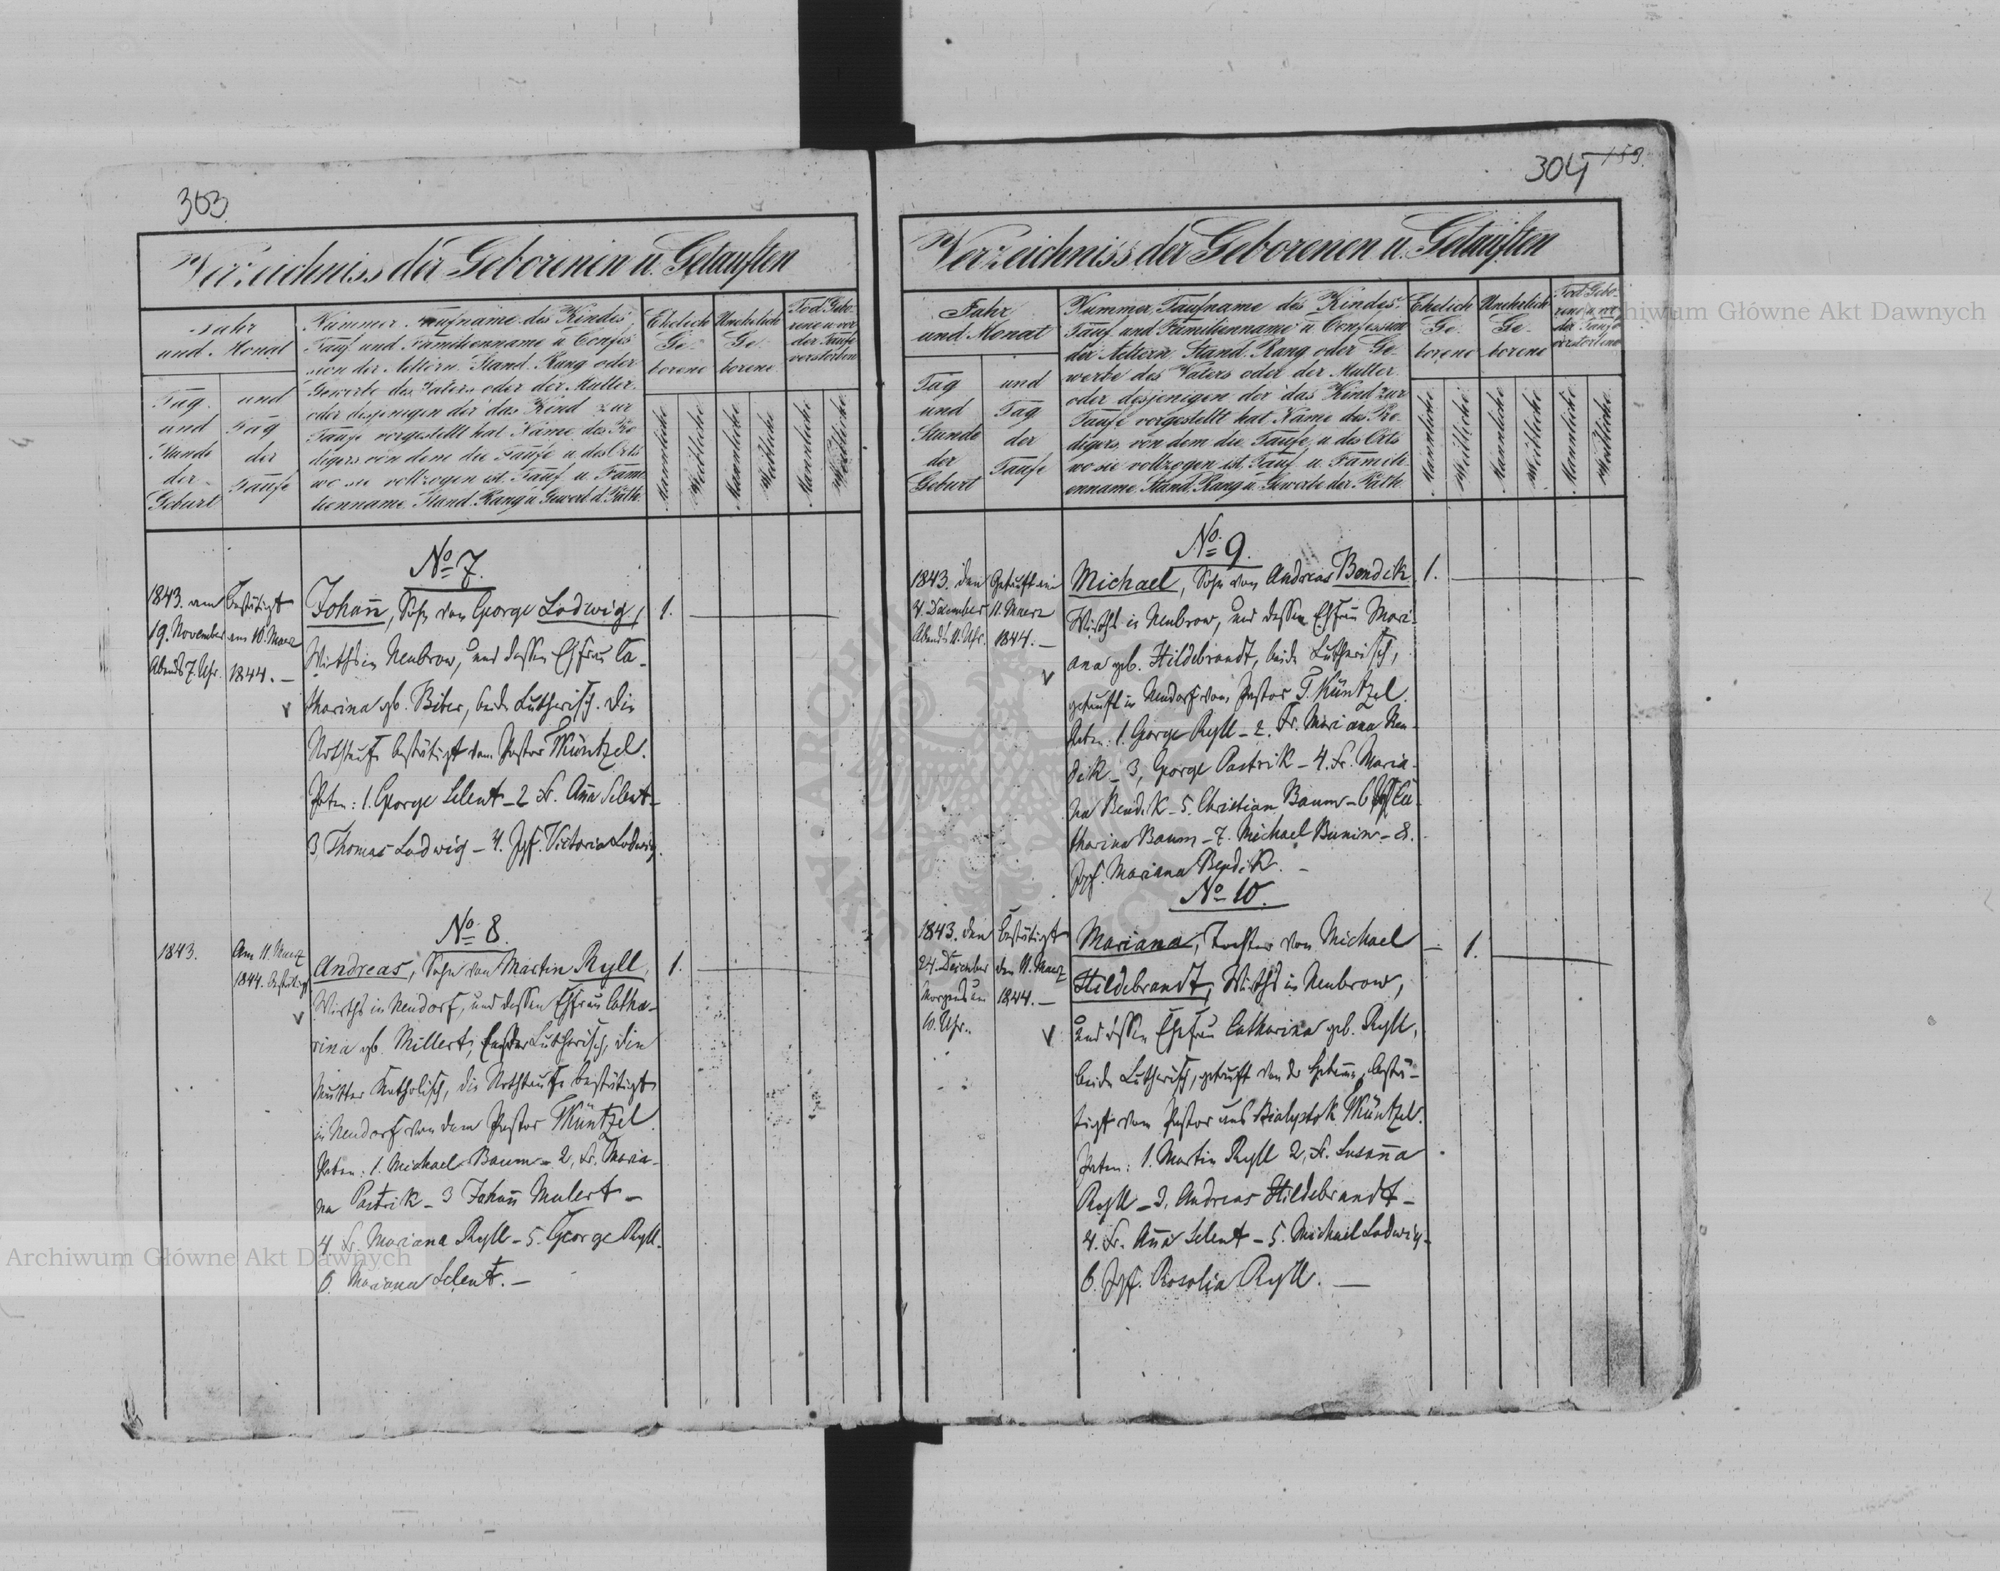 303.
Verzeichniss der Geborenen u. Getauften
Jahr
und Monat
Tag
und
Stunde
der
Geburt
und
Tag
der
Taufe
Nummer Taufname des Kindes,
Tauf und Familienname u Confes
sion der Aeltern. Stand. Rang oder
Gewerbe des Vaters oder der Mutter.
oder desjenigen der das Kind zur
Taufe vorgestellt hat. Name des Pre
digers von dem die Taufe u des Orts
wo sie vollzogen ist. Tauf u. Fami
lienname. Stand. Rang u Gewerb d. Path.
Ehelich
Ge-
borene
Unehelich
Ge-
borene
Tod Gebo-
rene u vor
der Taufe
verstorben
Männliche
Weibliche
Männliche
Weibliche
Männliche
Weibliche
No 7.
1843. am
19. November
Abends 7. Uhr.
bestätigt
am 10. Maerz
1844. —
Johann, Sohn von George Ludwig,
Wirths in Neubrow, und dessen Ehfrau Ca-
tharina gb. Biber, beide Lutherisch. Die
Nothtaufe bestätigt vom Pastor Küntzel.
Paten: 1. George Selent – 2 Fr. Anna Selent –
3 Thomas Ludwig – 4. Jgf. Victoria Ludwig.
1.
No 8.
1843.
Am 11. Maerz
1844. bestätigt
Andreas, Sohn von Martin Ryll,
Wirths in Neudorf, und dessen Ehfrau Catha-
rina gb. Millert, Lutherisch, die
Mutter Katholisch, die Nothtaufe bestätigt
in Neudorf von dem Pastor Küntzel.
Paten: 1. Michael Baum – 2, Fr. Maria-
na Pastrik – 3 Johann Mulert –
4. Fr. Mariana Ryll – 5. George Ryll.
6. Mariana Selent. –
1.
304
159.
Verzeichniss der Geborenen u. Getauften
Jahr
und Monat
Tag
und
Stunde
der
Geburt
und
Tag
der
Taufe
Nummer, Taufname des Kindes,
Tauf und Familienname u Confession
der Aeltern, Stand. Rang oder Ge-
werbe des Vaters oder der Mutter.
oder desjenigen der das Kind zur
Taufe vorgestellt hat. Name des Pre-
digers, von dem die Taufe u des Orts
wo sie vollzogen ist, Tauf u. Famili-
enname. Stand, Rang u. Gewerbe der Path.
Ehelich
Ge-
borene
Unehelich
Ge-
borene
Tod Gebo-
rene u vor
der Taufe
verstorbene
Männliche
Weibliche
Männliche
Weibliche
Männliche
Weibliche
No 9.
1843. den
4. December
Abends 11. Uhr.
Getauft am
11. Maerz
1844. —
Michael, Sohn von Andreas Bendik
Wirths in Neubrow, und dessen Ehfrau Mari-
ana geb. Hildebrandt, beide Lutherisch,
getauft in Neudorf vom Pastor T. Küntzel.
Paten: 1. George Ryll – 2. Fr. Mariana Ben-
dik – 3, George Pastrik – 4. Fr. Maria-
na Bendik – 5. Christian Baum – 6 Jgf Ca-
tharina Baum – 7. Michael Bunin – 8.
Jgf. Mariana Bendik. –
1.
No 10.
1843. den
24. December
Morgends um
10. Uhr.
bestätigt
den 11. Maerz
1844. —
Mariana, Tochter von Michael
Hildebrandt, Wirths in Neubrow,
und dessen Ehefrau Catharina geb. Ryll,
beide Lutherisch, getauft von der Hebamme, bestä-
tigt vom Pastor aus Bialystok Küntzel.
Paten: 1. Martin Ryll 2, Fr. Susanna
Ryll – 3. Andreas Hildebrandt –
4. Fr. Anna Selent – 5. Michael Ludwig –
6. Jgf. Rosalia Ryll. —
1.
Archiwum Główne Akt Dawnych
Archiwum Główne Akt Dawnych